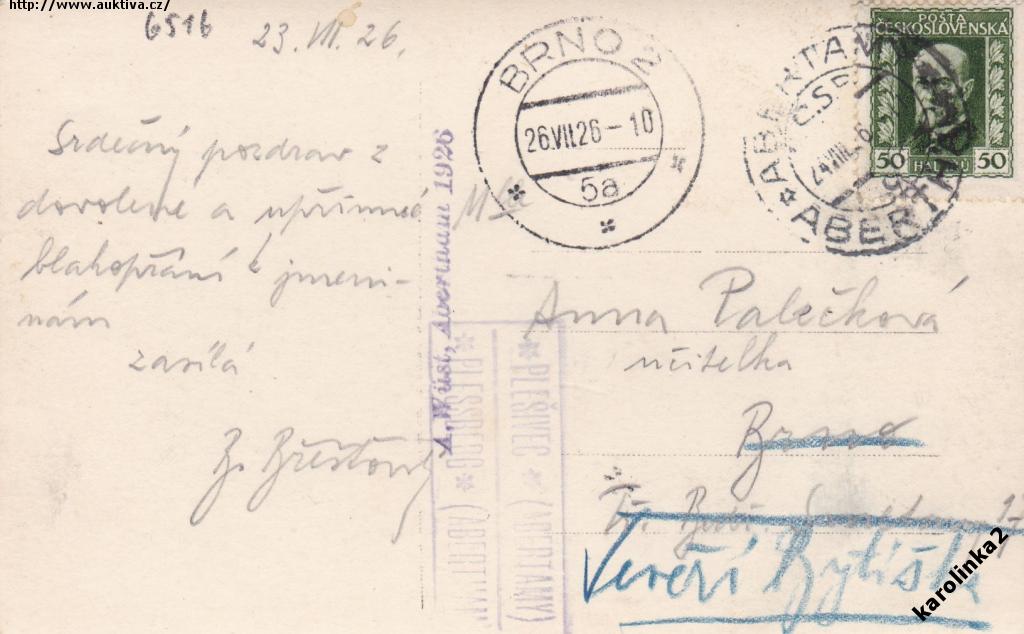 http://www.auktiva.cz/
6516
23. VII. 26.
Srdečný pozdrav z
dovolené a upřímné
blahopřání k jmeni-
nám
zasílá
A. Wüst, Abertham 1926
* PLEŠIVEC * (ABERTAMY)
* PLESSBERG * (ABERTHAM
BRNO 2
26.VII.26-10
5a
ABERTAMY
ČSR
ABERTHAM
POŠTA
ČESKOSLOVENSKÁ
50 HALÉŘŮ 50
Mlle
Anna Palečková
učitelka
Brno
Veveří Bytíška
karolinka2